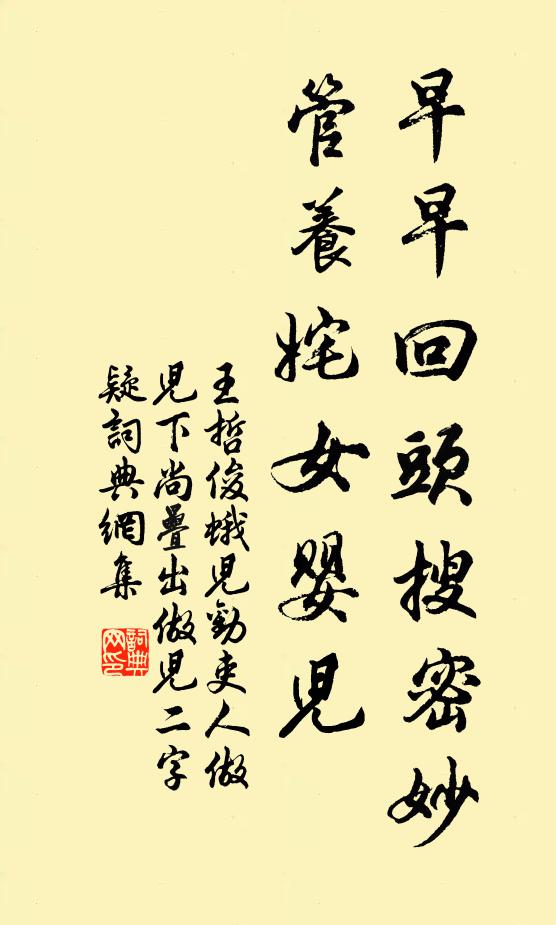 早早回頭搜密妙
管養姹女嬰兒
王哲俊蛾兒勸吏人做
兒下尚疊出做兒二字
疑詞典網集
詞典
网印